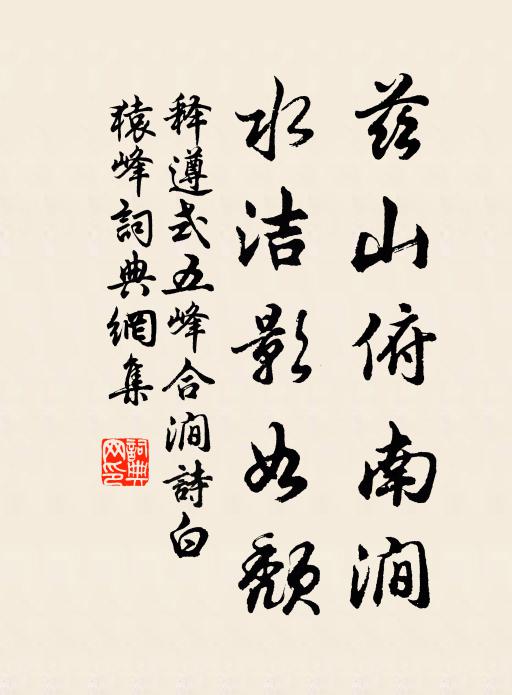 兹山俯南涧
水洁影如颓
释遵式五峰合涧詩白
猿峰詞典網集
詞典网印